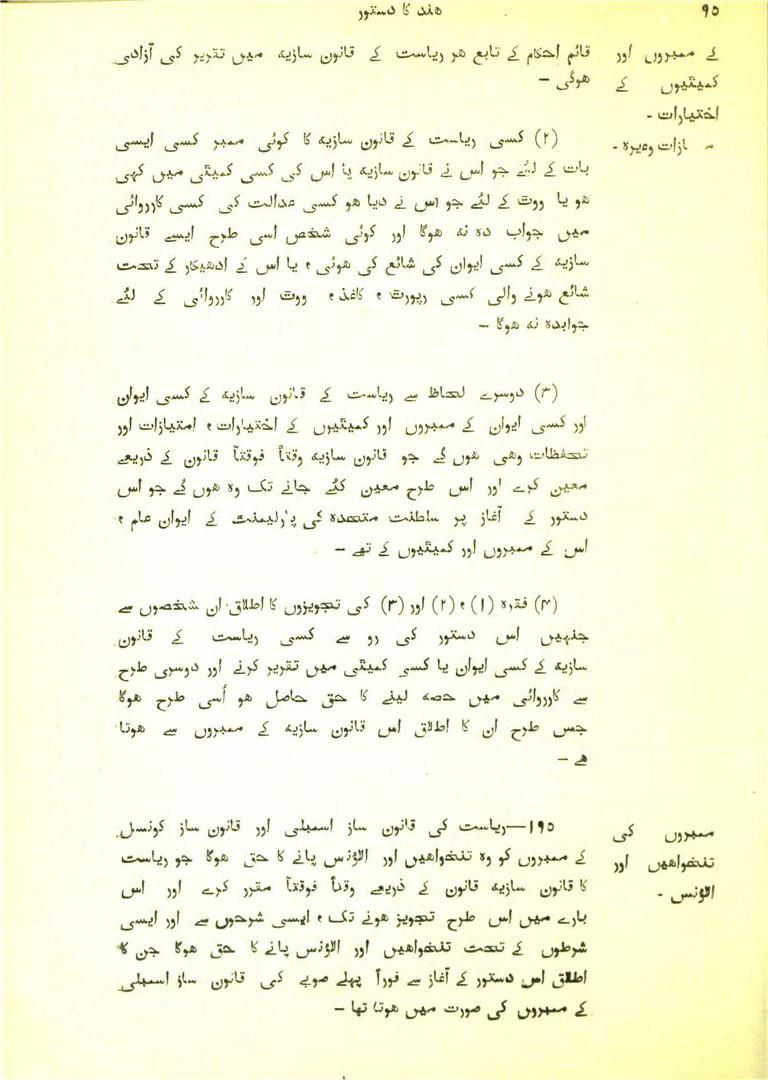 ۹۵
هند کا دستور
کے ممبروں اور
کمیٹیوں کے
اختیارات -
ازات وغیرہ -
قائم احکام کے تابع هر ریاست کے قانون سازیہ میں تقریر کی آزادی
هوگی -
(۲) کسی ریاست کے قانون سازیہ کا کوئی ممبر کسی ایسی
بات کے لئے جو اس نے قانون سازیہ یا اس کی کسی کمیٹی میں کہی
هو یا ووٹ کے لئے جو اس نے دیا هو کسی عدالت کی کسی کارروائی
میں جواب دہ نہ هوگا اور کوئی شخص اسی طرح ایسے قانون
سازیہ کے کسی ایوان کی شائع کی هوئی ، یا اس کے ادهیکار کے تحت
شائع هونے والی کسی رپورٹ ، کاغذ ، ووٹ اور کارروائی کے لئے
جوابدہ نہ هوگا -
(۳) دوسرے لحاظ سے ریاست کے قانون سازیہ کے کسی ایوان
اور کسی ایوان کے ممبروں اور کمیٹیوں کے اختیارات ، امتیازات اور
تحفظات وهی هوں گے جو قانون سازیہ وقتاً فوقتاً قانون کے ذریعے
معین کرے اور اس طرح معین کئے جانے تک وہ هوں گے جو اس
دستور کے آغاز پر سلطنت متحدہ کی پارلیمنٹ کے ایوان عام ،
اس کے ممبروں اور کمیٹیوں کے تهے -
(۴) فقرہ (۱) ، (۲) اور (۳) کی تجویزوں کا اطلاق ان شخصوں سے
جنہیں اس دستور کی رو سے کسی ریاست کے قانون
سازیہ کے کسی ایوان یا کسی کمیٹی میں تقریر کرنے اور دوسری طرح
سے کارروائی میں حصہ لینے کا حق حاصل هو اُسی طرح هوگا
جس طرح ان کا اطلاق اس قانون سازیہ کے ممبروں سے هوتا
هے -
ممبروں کی
تنخواهیں اور
الاؤنس -
۱۹۵—ریاست کی قانون ساز اسمبلی اور قانون ساز کونسل
کے ممبروں کو وہ تنخواهیں اور الاؤنس پانے کا حق هوگا جو ریاست
کا قانون سازیہ قانون کے ذریعے وقتاً فوقتاً مقرر کرے اور اس
بارے میں اس طرح تجویز هونے تک ، ایسی شرحوں سے اور ایسی
شرطوں کے تحت تنخواهیں اور الاؤنس پانے کا حق هوگا جن کا
اطلاق اس دستور کے آغاز سے فوراً پہلے صوبے کی قانون ساز اسمبلی
کے ممبروں کی صورت میں هوتا تها -